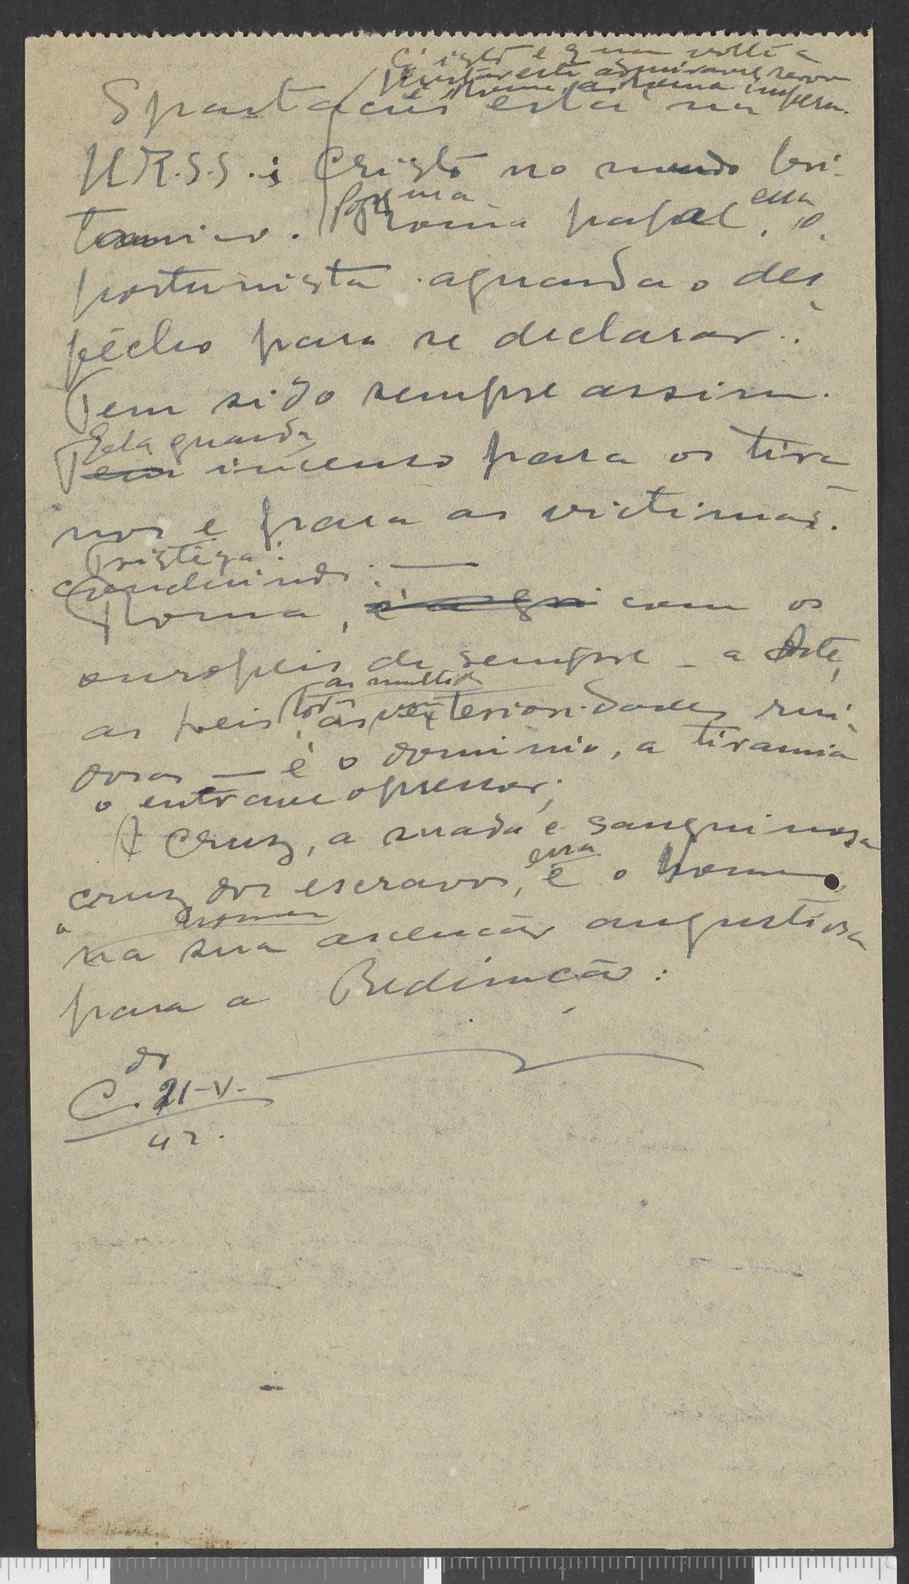 Cristo e
Spartacus está na
U.R.S.S. e Cristo no mundo bri-
tanico. Roma papal, essa, o
portunista aguarda o des
fêcho para se declarar.
Tem sido sempre assim.
Ela guarda
Tem incenso para os tira
nos e para as victimas.
concluindo: —
Roma, com os
europeis de sempre - a Arte,
as leis, as exterioridades rui-
dosas — é o dominio, a tirania
o entrave opressor;
A Cruz, a suada e sanguinosa
cruz dos escravos, essa é o homem
na sua ascenção angustiosa
para a Redimção.
C. 21-V-
42.